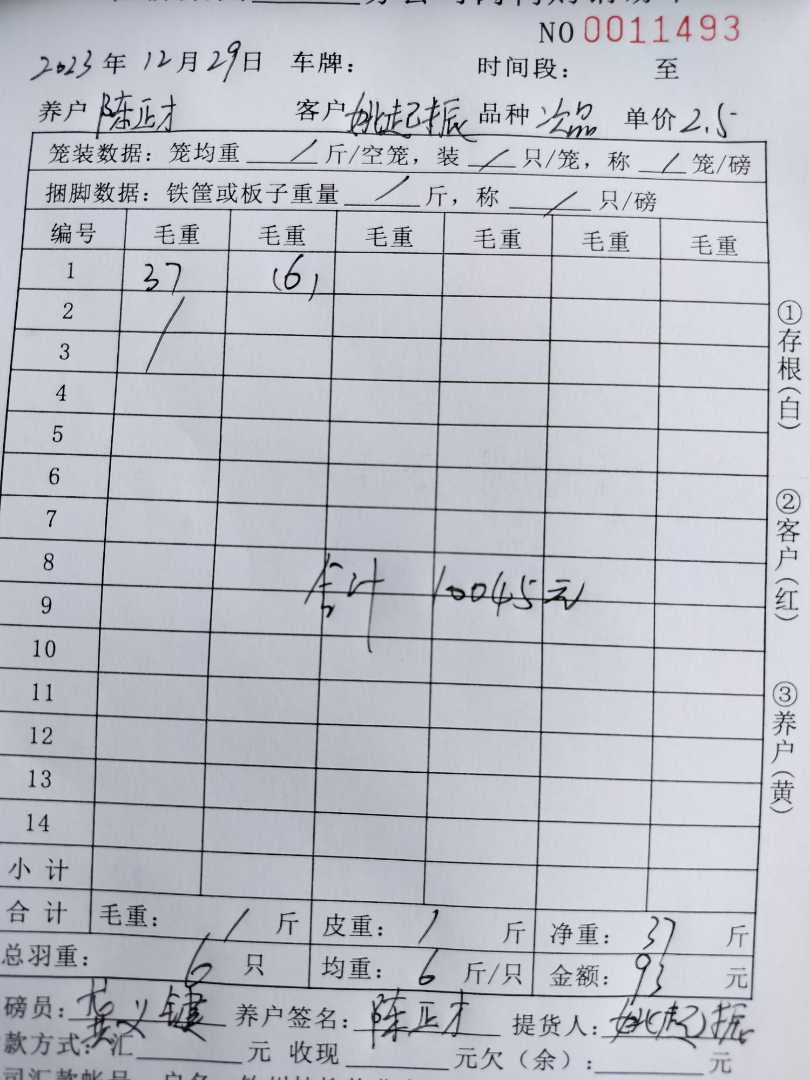 NO 0011493
2023年12月29日 车牌： 时间段： 至
养户 陈正才 客户 姚起振 品种 次品 单价 2.5
笼装数据：笼均重 / 斤/空笼，装 / 只/笼，称 / 笼/磅
捆脚数据：铁筐或板子重量 / 斤，称 / 只/磅
编号 毛重 毛重 毛重 毛重 毛重 毛重
1 37 (6)
2
3
4
5
6
7
8
合计 10045元
9
10
11
12
13
14
小计
合计 毛重： / 斤 皮重： / 斤 净重： 37 斤
总羽重： 6 只 均重： 6 斤/只 金额： 93 元
磅员： 养户签名： 陈正才 提货人： 姚起振
款方式：汇 元 收现 元欠（余）： 元
①存根（白）
②客户（红）
③养户（黄）